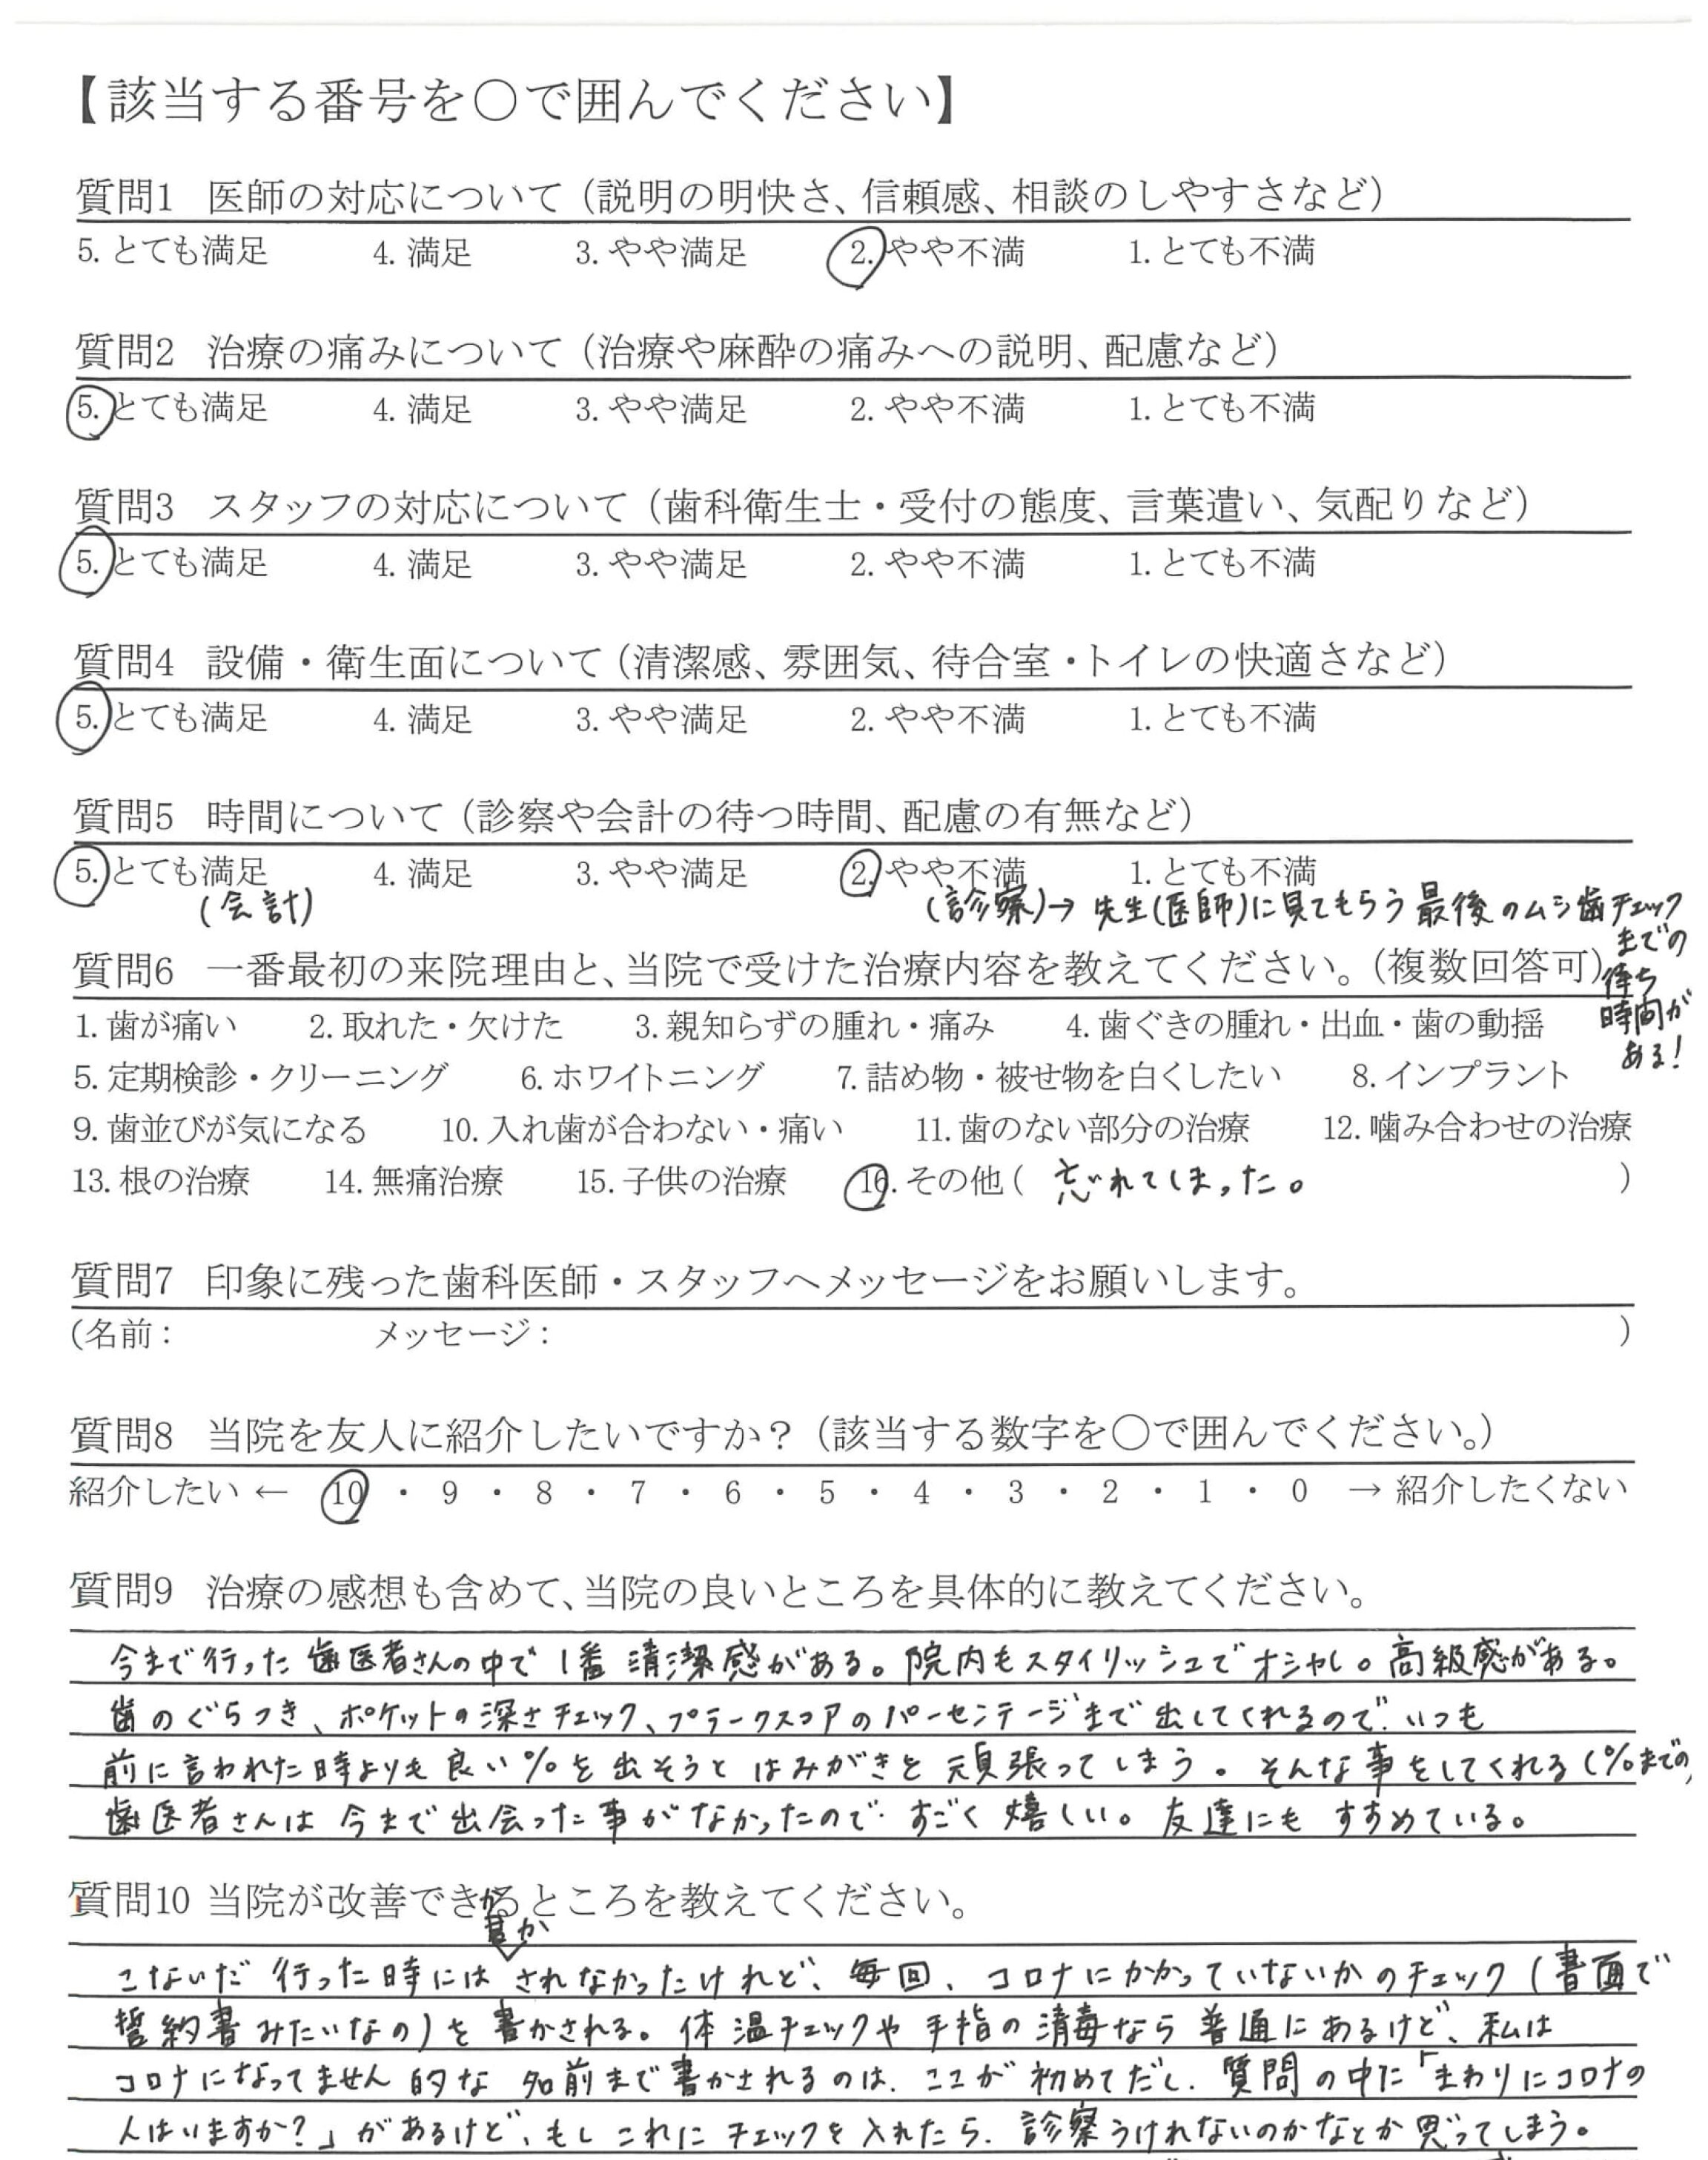 【該当する番号を〇で囲んでください】
質問1 医師の対応について（説明の明快さ、信頼感、相談のしやすさなど）
5. とても満足 4. 満足 3. やや満足 2. やや不満 1. とても不満
質問2 治療の痛みについて（治療や麻酔の痛みへの説明、配慮など）
5. とても満足 4. 満足 3. やや満足 2. やや不満 1. とても不満
質問3 スタッフの対応について（歯科衛生士・受付の態度、言葉遣い、気配りなど）
5. とても満足 4. 満足 3. やや満足 2. やや不満 1. とても不満
質問4 設備・衛生面について（清潔感、雰囲気、待合室・トイレの快適さなど）
5. とても満足 4. 満足 3. やや満足 2. やや不満 1. とても不満
質問5 時間について（診察や会計の待つ時間、配慮の有無など）
5. とても満足 4. 満足 3. やや満足 2. やや不満 1. とても不満
(会計) (診察)→ 先生(医師)に見てもらう最後のムシ歯チェック
までの
待ち
時間が
ある!
質問6 一番最初の来院理由と、当院で受けた治療内容を教えてください。（複数回答可）
1. 歯が痛い 2. 取れた・欠けた 3. 親知らずの腫れ・痛み 4. 歯ぐきの腫れ・出血・歯の動揺
5. 定期検診・クリーニング 6. ホワイトニング 7. 詰め物・被せ物を白くしたい 8. インプラント
9. 歯並びが気になる 10. 入れ歯が合わない・痛い 11. 歯のない部分の治療 12. 噛み合わせの治療
13. 根の治療 14. 無痛治療 15. 子供の治療 16. その他（ 忘れてしまった。 ）
質問7 印象に残った歯科医師・スタッフへメッセージをお願いします。
（名前： メッセージ： ）
質問8 当院を友人に紹介したいですか？（該当する数字を〇で囲んでください。）
紹介したい ← 10 ・ 9 ・ 8 ・ 7 ・ 6 ・ 5 ・ 4 ・ 3 ・ 2 ・ 1 ・ 0 → 紹介したくない
質問9 治療の感想も含めて、当院の良いところを具体的に教えてください。
今まで行った歯医者さんの中で1番清潔感がある。院内もスタイリッシュでオシャレ。高級感がある。
歯のぐらつき、ポケットの深さチェック、プラークスコアのパーセンテージまで出してくれるので、いつも
前に言われた時よりも良い%を出そうとはみがきを頑張ってしまう。そんな事をしてくれる(%までの)
歯医者さんは今まで出会った事がなかったので、すごく嬉しい。友達にもすすめている。
質問10 当院が改善できるところを教えてください。
書か
こないだ行った時にはされなかったけれど、毎回、コロナにかかっていないかのチェック(書面で
誓約書みたいなの)を書かされる。体温チェックや手指の消毒なら普通にあるけど、私は
コロナになってません的な名前まで書かされるのは、ここが初めてだし、質問の中に「まわりにコロナの
人はいますか?」があるけど、もしこれにチェックを入れたら、診察うけれないのかなとか思ってしまう。